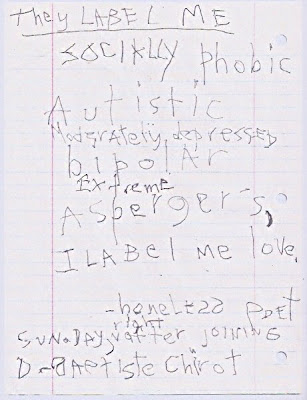 they LABEL ME
SOCIALLY phobic
Autistic
Moderately depressed
bipolar
Extreme
Asperger's,
I LABEL me love.
-honeLess POET
right
SUNDAY after joining
D-BAptiste Chirot